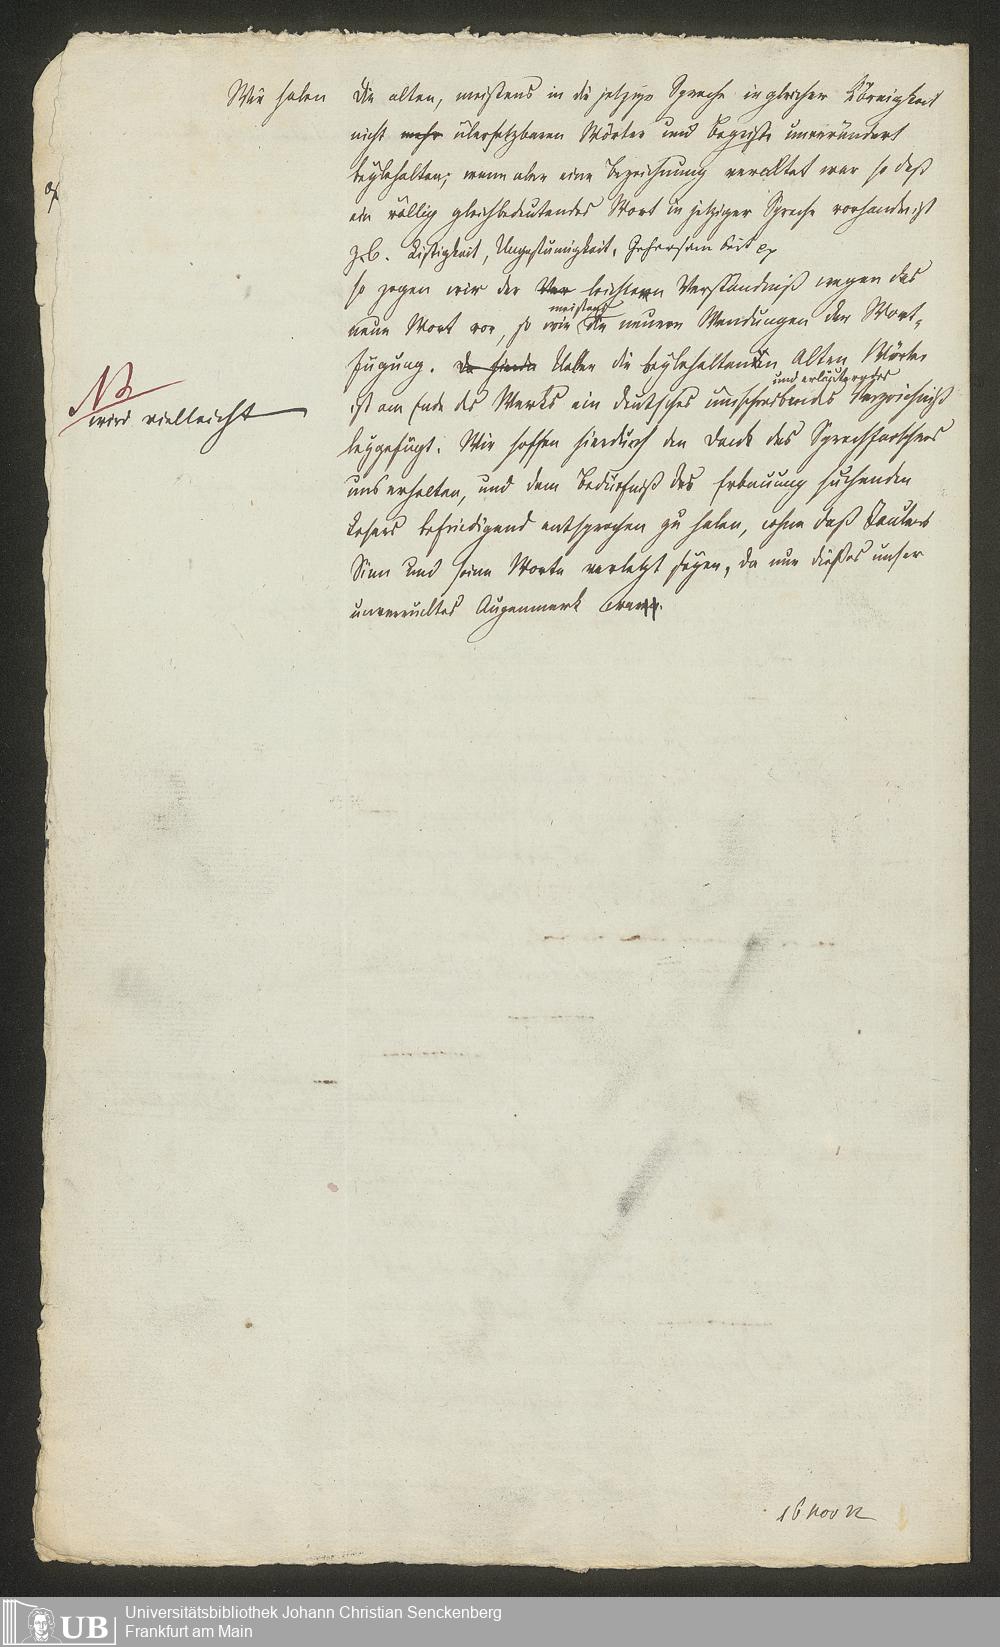 Wir haben die alten, meistens in die jetzige Sprache in gleicher Körnigkeit
nicht mehr übersetzbaren Wörter und Begriffe unverändert
beybehalten; wenn aber eine Bezeichnung veraltet war so daß
ein völlig gleichbedeutendes Wort in jetziger Sprache vorhanden ist
z.b. Listigkeit, Ungestümigkeit, Gehorsamkeit
so zogen wir der Ver leichtern Verständniß wegen das
neue Wort vor, so wie meistens die neuern Wendungen der Wort-
fügung. Ueber die beybehaltenen Alten Wörter
NB
wird vielleicht
ist am Ende des Werks ein deutsches umschreibendes und erläuterndes Verzeichniß
beygefügt. Wir hoffen hierdurch den Dank des Sprachforschers
uns erhalten, und dem Bedürfniß des Erbauung suchenden
Lesers befriedigend entsprochen zu haben, ohne daß Taulers
Sinn und seine Worte verletzt seyen, da nur dieses unser
unverrücktes Augenmerk war.
16 Nov 22
Universitätsbibliothek Johann Christian Senckenberg
Frankfurt am Main
UB